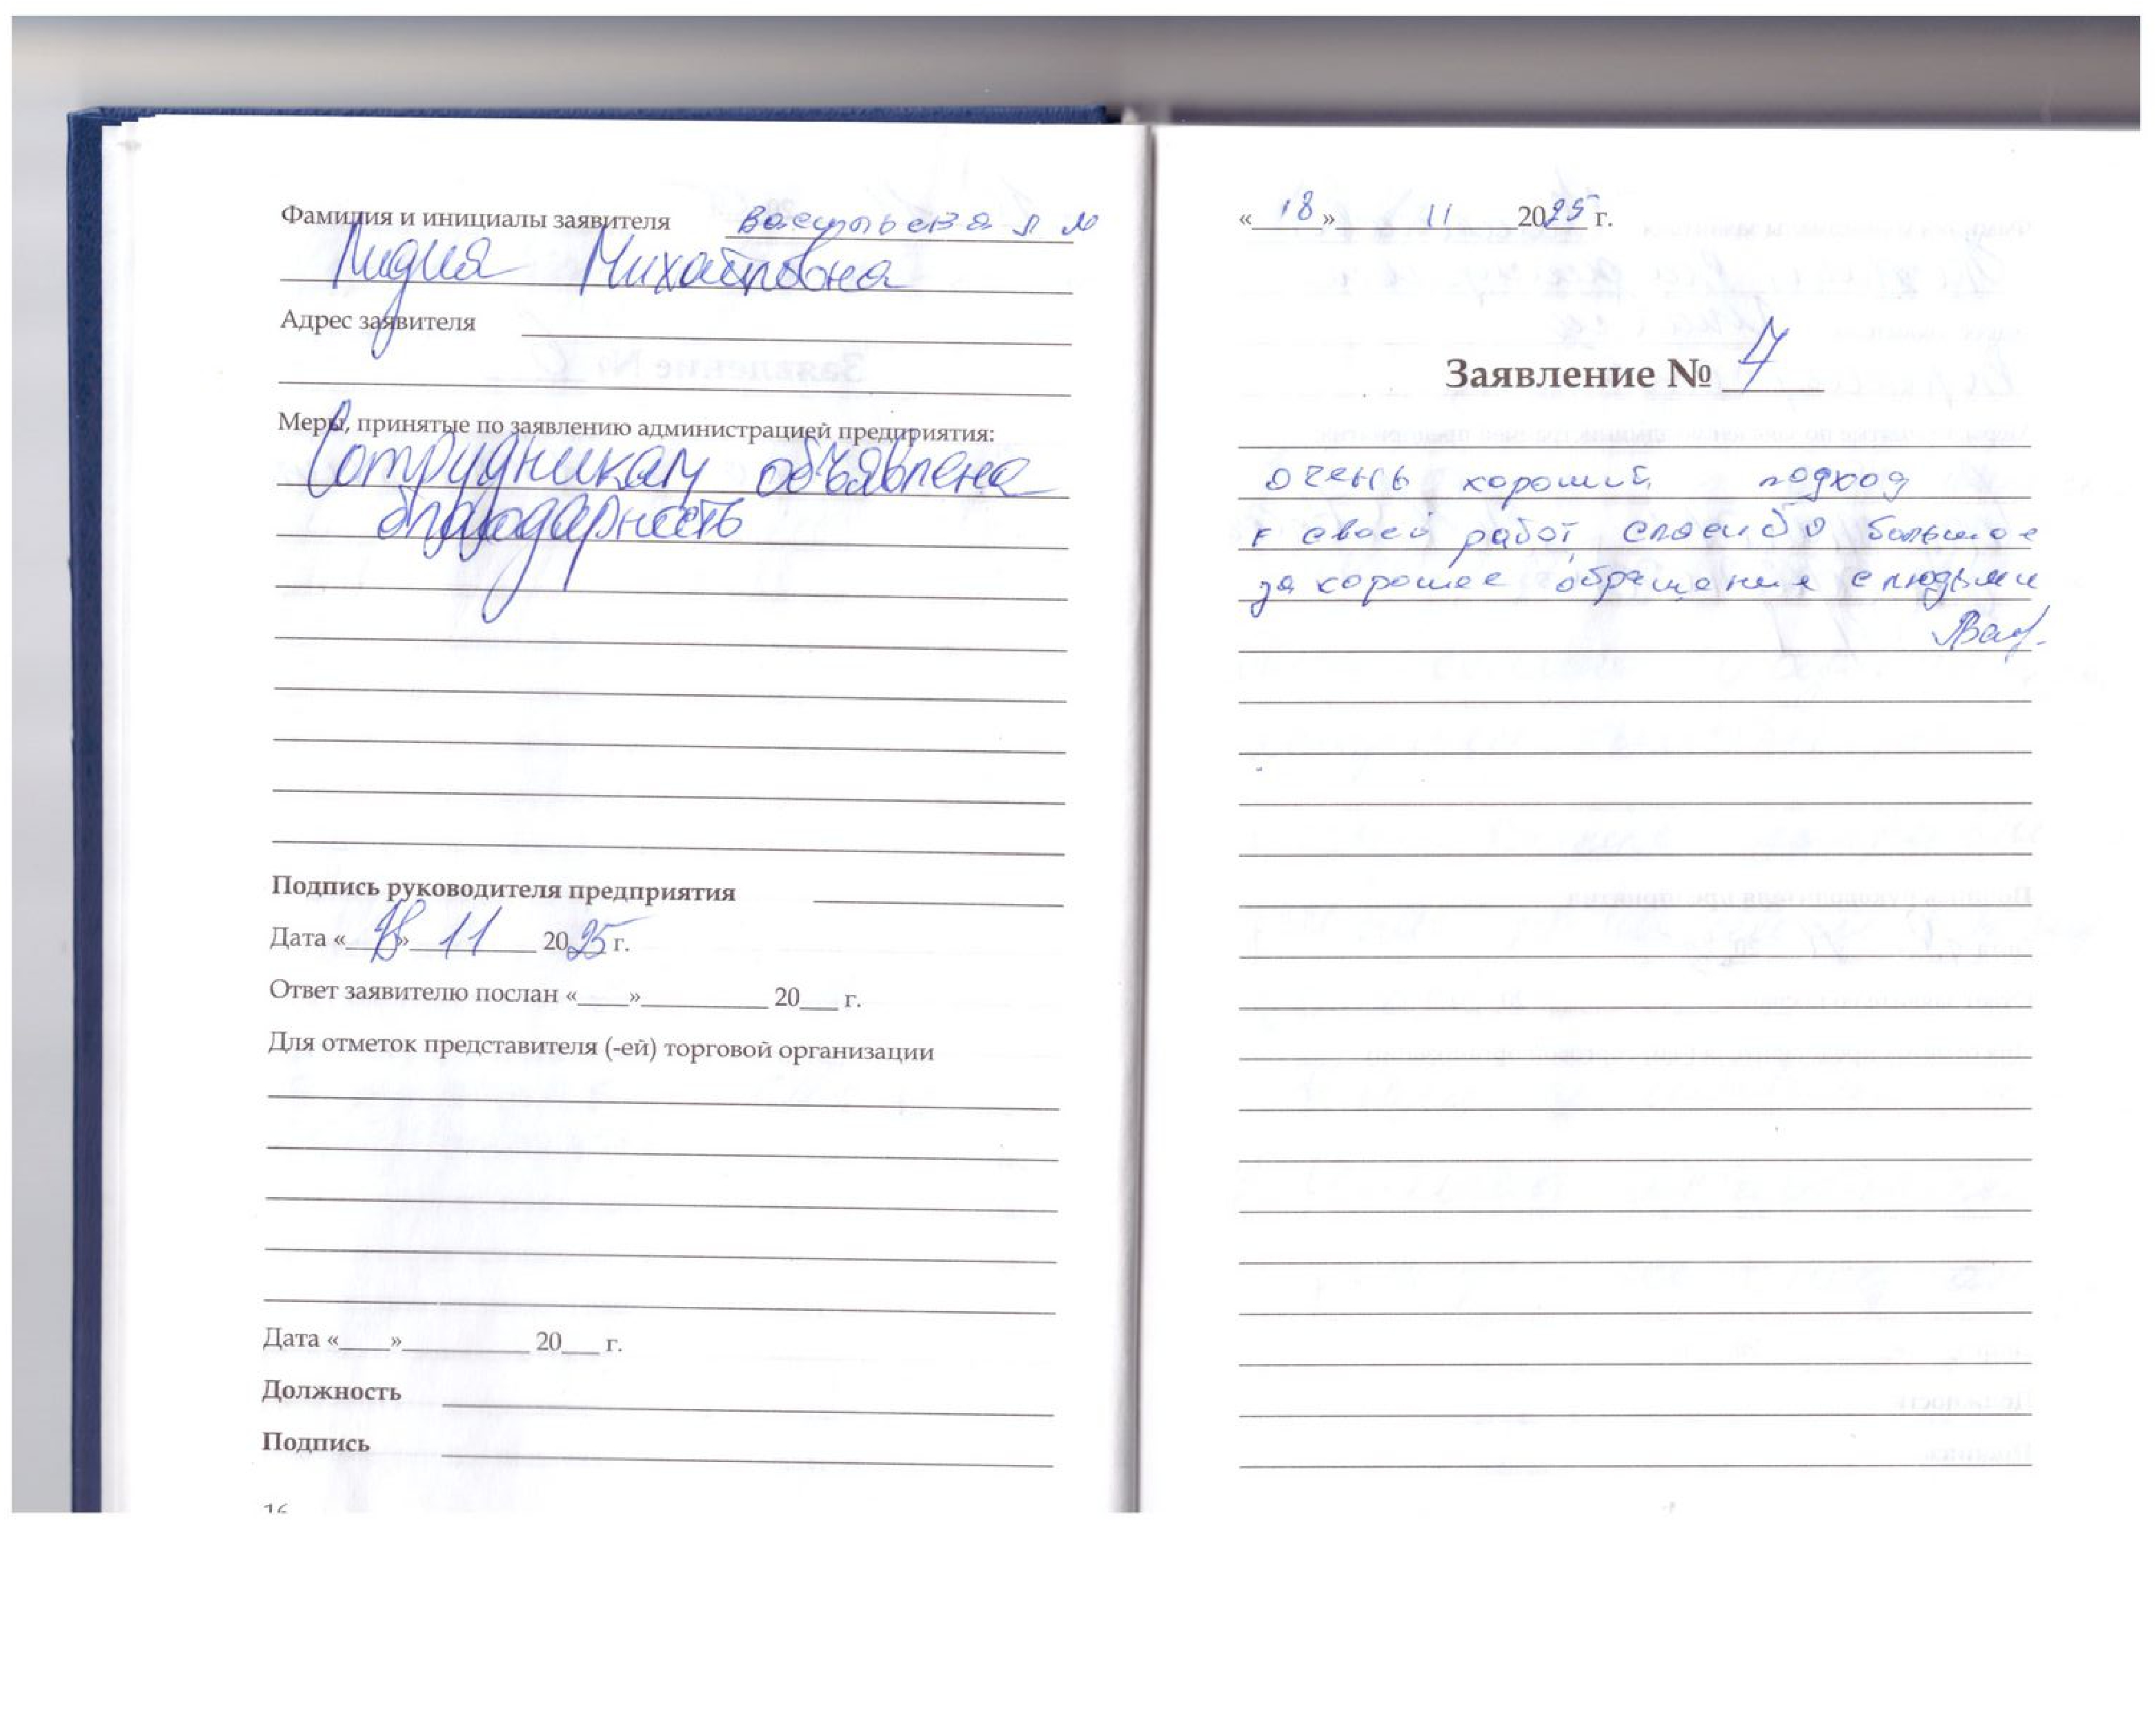 Фамилия и инициалы заявителя Васильева Л М
Лидия Михайловна
Адрес заявителя
Меры, принятые по заявлению администрацией предприятия:
Сотрудникам объявлена
благодарность
Подпись руководителя предприятия
Дата «18» 11 2025 г.
Ответ заявителю послан «____»__________ 20___ г.
Для отметок представителя (-ей) торговой организации
Дата «____»__________ 20___ г.
Должность
Подпись
16
«18» 11 2025 г.
Заявление № 7
очень хороший подход
к своей работ спасибо большое
за хорошее обращения с людьми